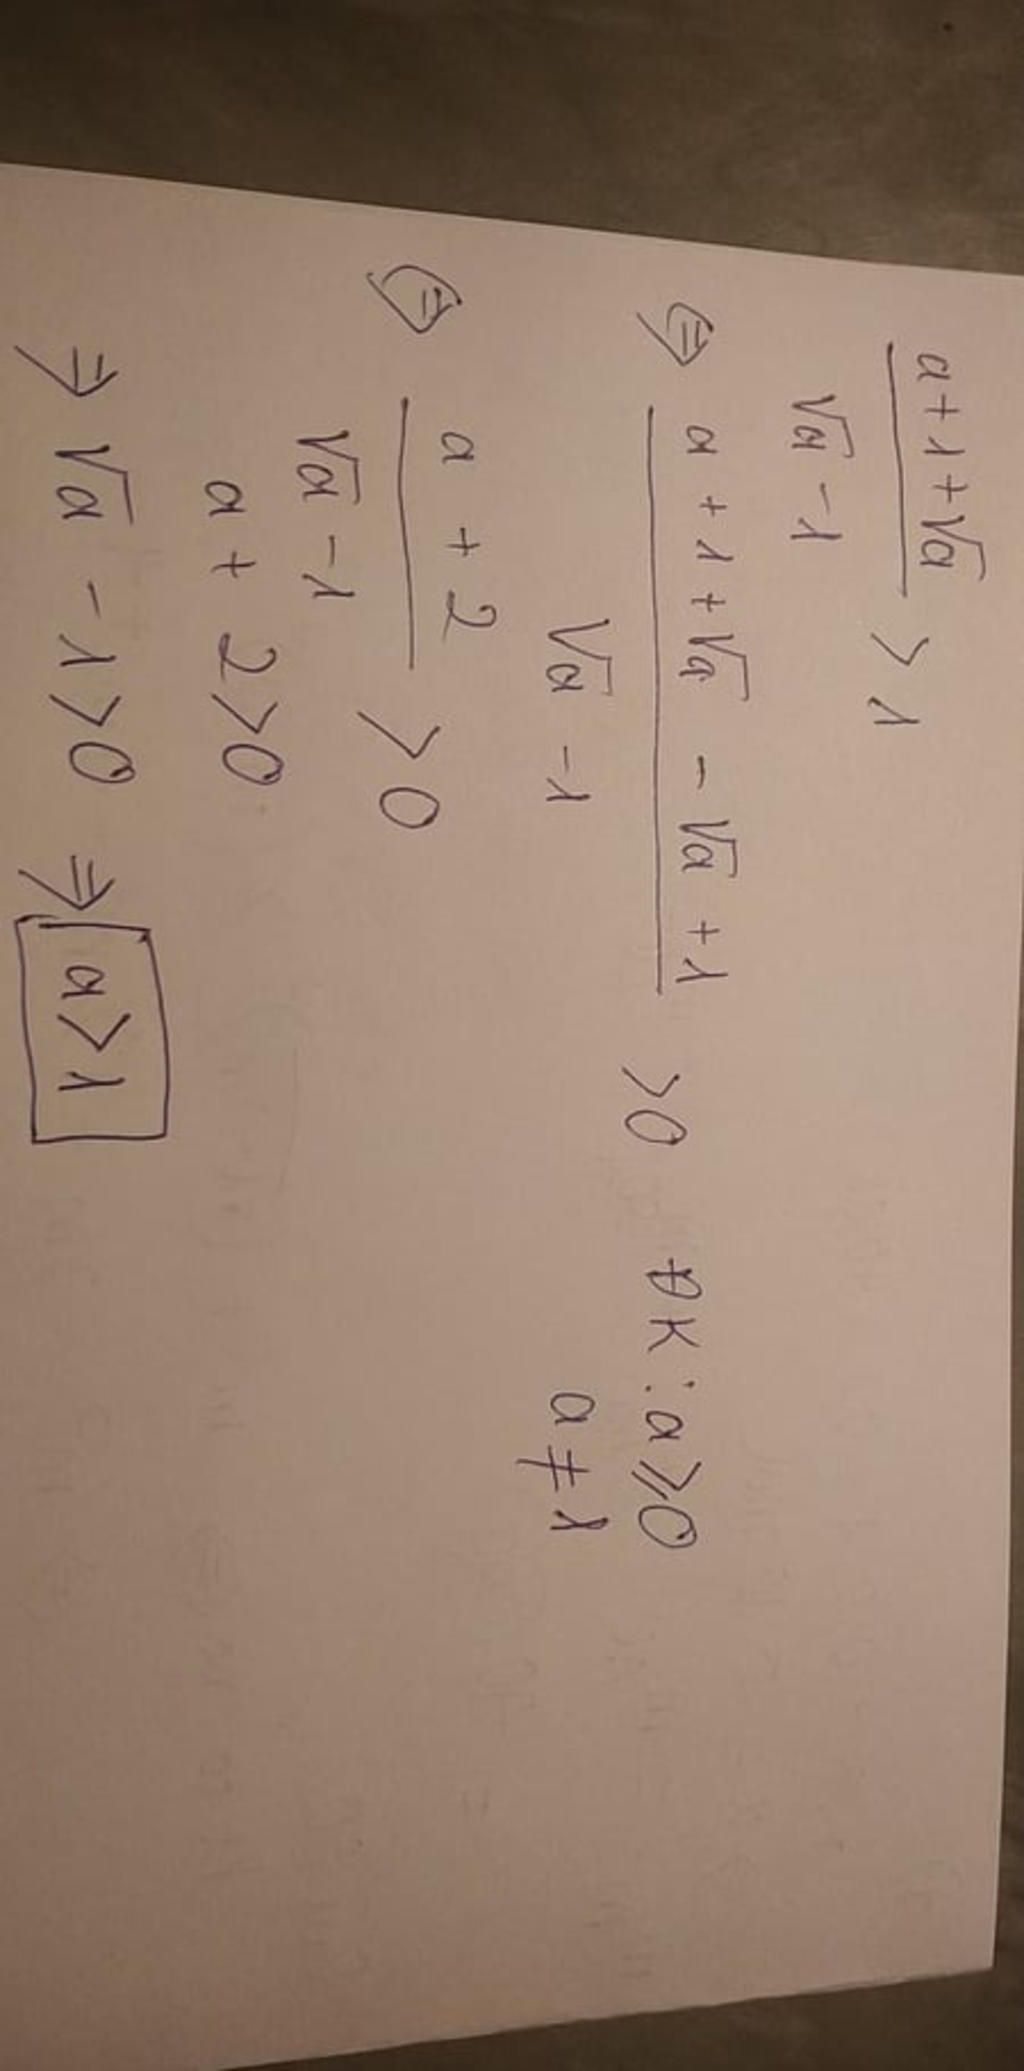 a+1+√a / √a -1 > 1
⇔ a + 1 + √a - √a + 1 / √a -1 > 0 ĐK: a ≥ 0
a ≠ 1
⇔ a + 2 / √a -1 > 0
a + 2 > 0
⇒ √a - 1 > 0 ⇒ a > 1